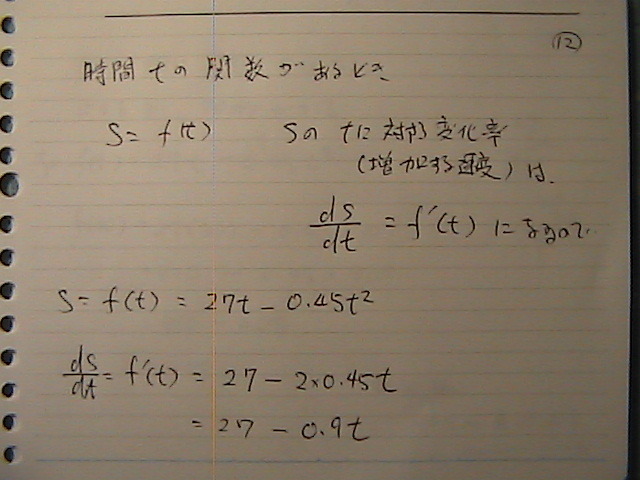 ⑫
時間 tの 関数が あるとき
S = f(t) Sの tに 対する 変化率
(増加する速度) は、
ds/dt = f'(t) になるので
S = f(t) = 27t - 0.45t²
ds/dt = f'(t) = 27 - 2×0.45t
= 27 - 0.9t